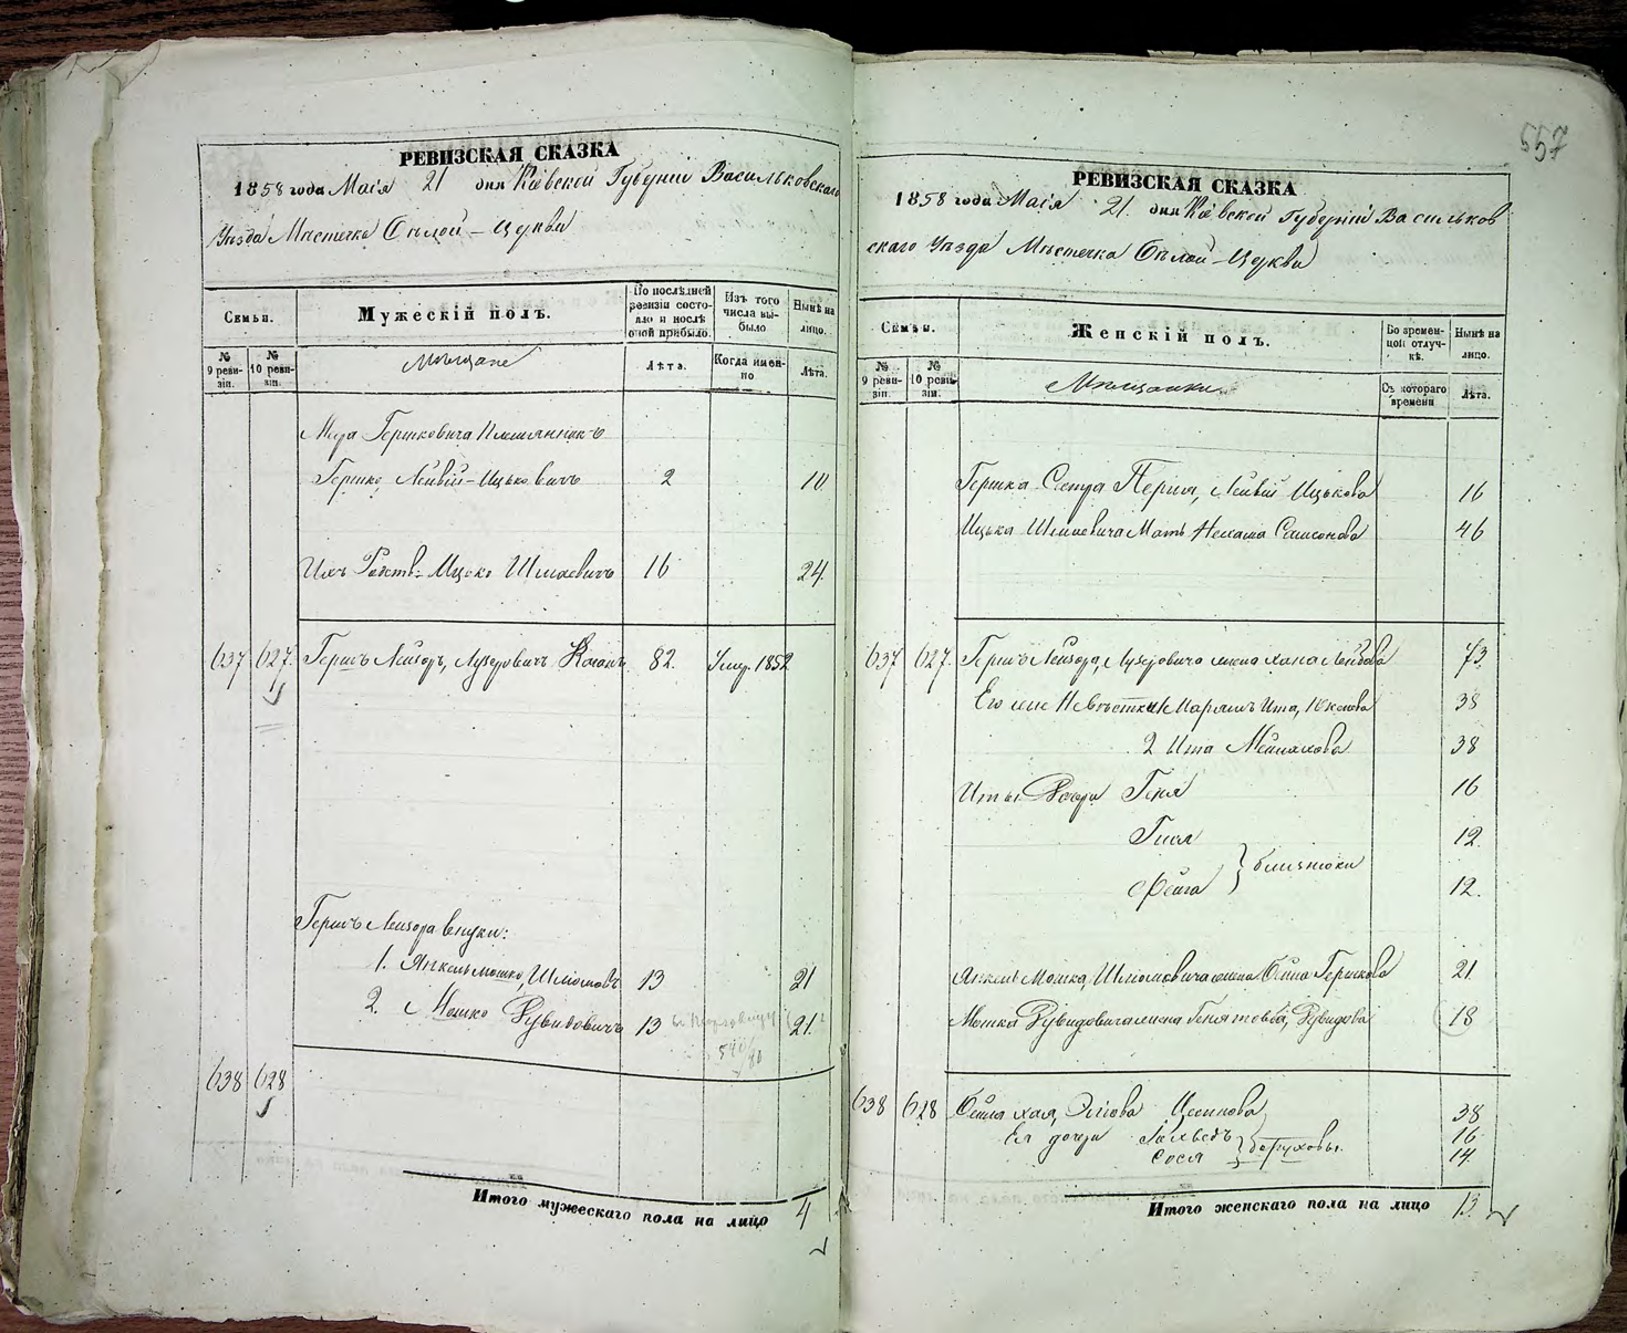 557
РЕВИЗСКАЯ СКАЗКА
1858 года Маія 21 дня Кіевской Губерніи Васильковскаго
Уѣзда Мѣстечка Бѣлой-Церкви
Семьи.
Мужескій полъ.
По послѣдней ревизіи состояло и послѣ оной прибыло.
Изъ того числа выбыло
Нынѣ на лицо.
№ 9 ревизіи.
№ 10 ревизіи.
Мѣщане
Лѣта.
Когда именно
Лѣта.
Гершковича Племянникъ
Гершко Лейвій-Ицьковичъ 2 10
Ихъ Родств: Ицько Шмаевичъ 16 24.
637 627. Гершъ Лейзоръ, Лузеровичъ Коганъ. 82. Умер. 1852
Гершъ Лейзора внуки:
1. Янкель Мошко, Шлиомовъ 13 21
2. Мошко Дувидовичъ 13 21.
638 628
Итого мужескаго пола на лицо 4
РЕВИЗСКАЯ СКАЗКА
1858 года Маія 21. дня Кіевской Губерніи Васильков
скаго Уѣзда Мѣстечка Бѣлой-Церкви
Семьи.
Женскій полъ.
Во временной отлучкѣ.
Нынѣ на лицо.
№ 9 ревизіи.
№ 10 ревизіи.
Мѣщанки
Съ котораго времени
Лѣта.
Гершка Сестра Перля, Лейвій Ицькова 16
Ицька Шмаевича Мать Нехама Самсонова 46
637 627. Гершъ Лейзора, Лузеровича жена Хана Лейбова 73.
Его же Невѣстки 1 Марьямъ Ита, 38
2 Ита 38
Иты Дочери Геня 16
Гися 12.
Фейга } близнюки 12.
Янкель Мошка, Шлиомовича жена Бейла Гершкова 21
Мошка Дувидовича жена Геня Товба, Дувидова 18
638 628 Бейла Хая, 38
Ея дочери 16
Сося } Боруховы. 14.
Итого женскаго пола на лицо 13.